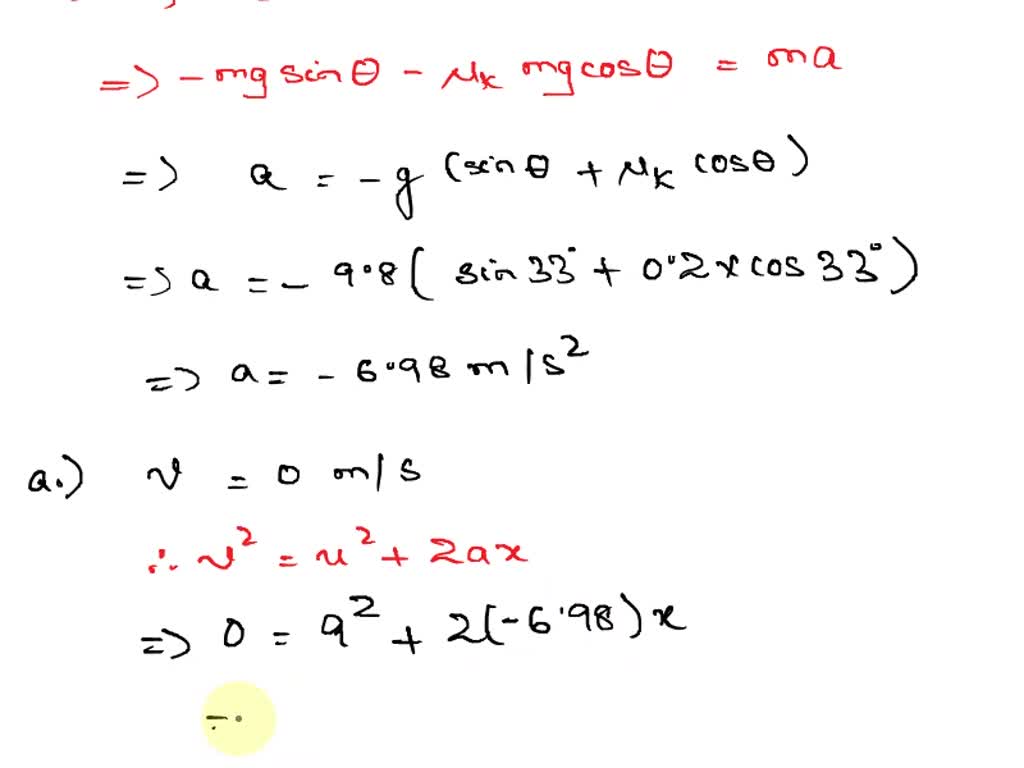 => - mg sinθ - μk mg cosθ = ma
=> a = -g (sinθ + μk cosθ)
=> a = - 9.8 ( sin 33° + 0.2 x cos 33° )
=> a = - 6.98 m/s²
a.) v = 0 m/s
∴ v² = u² + 2ax
=> 0 = 9² + 2(-6.98)x